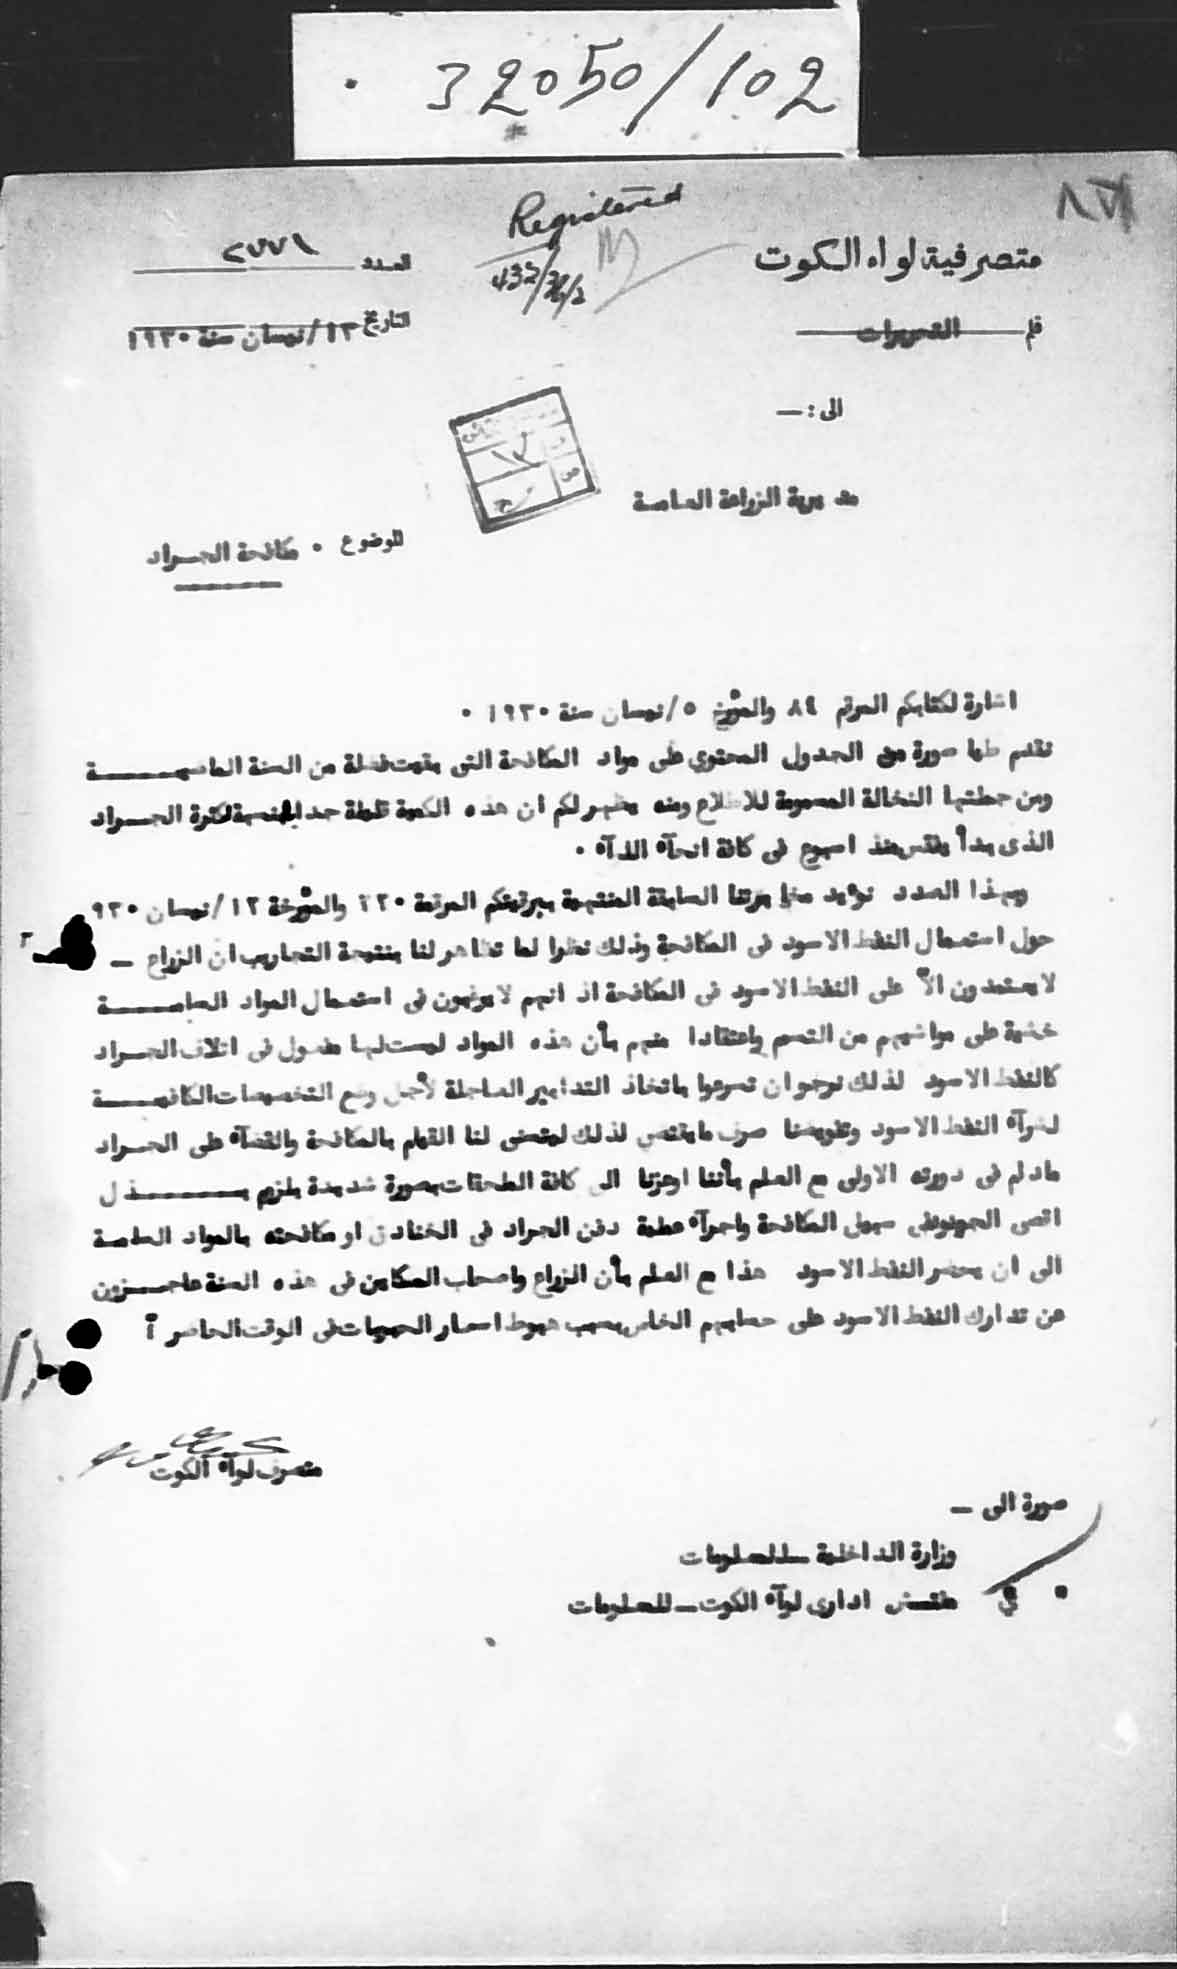 32050/102
Registered
432/36/2
متصرفية لواء الكوت
العدد ٢٧٧١
قلم التحريرات
التاريخ ١٣/نيسان سنة ١٩٣٠
الى :ـ
مديرية الزراعة العامة
الموضوع ٠ مكافحة الجراد
اشارة لكتابكم المرقم ٨٤ والمؤرخ ٥/نيسان سنة ١٩٣٠ ٠
نقدم طيا صورة من الجدول المحتوي على مواد المكافحة التى بقيت فضلة من السنة الماضيـة
ومن جملتها النخالة المسمومة للاطلاع ومنه يظهر لكم ان هذه الكمية قليلة جدا بالنسبة لكثرة الجـراد
الذى بدأ يفقس منذ اسبوع فى كافة انحآء اللوآء ٠
وبهذا الصدد نؤيد مخابرتنا السابقة المنتهية ببرقيتكم المرقمة ٢٢٠ والمؤرخة ١٢/نيسان ٩٣٠
حول استعمال النفط الاسود فى المكافحة وذلك نظرا لما تظاهر لنا بنتيجة التجاريب ان الزراع ـ
لا يعتمدون الاّ على النفط الاسود فى المكافحة اذ انهم لا يرغبون فى استعمال المواد السامـة
خشية على مواشيهم من التسمم واعتقادا منهم بأن هذه المواد ليست لها مفعول فى اتلاف الجـراد
كالنفط الاسود لذلك نرجو ان تسرعوا باتخاذ التدابير العاجلة لأجل وضع التخصيصات الكافيـة
لشرآء النفط الاسود وتفويضنا صرف ما يقتضى لذلك ليتسنى لنا القيام بالمكافحة والقضآء على الجـراد
مادام فى دورته الاولى مع العلم بأننا اوعزنا الى كافة الملحقات بصورة شديدة بلزوم بـذل
اقصى الجهود فى سبيل المكافحة واجرآء عملية دفن الجراد فى الخنادق او مكافحته بالمواد السامـة
الى ان يحضر النفط الاسود هذا مع العلم بأن الزراع واصحاب المكاين فى هذه السنة عاجـزون
عن تدارك النفط الاسود على حسابهم الخاص بسبب هبوط اسعار الحبوبات فى الوقت الحاضر
متصرف لوآء الكوت
صورة الى ـ
وزارة الداخلية ـ للمعلومات
مفتش ادارى لوآء الكوت ـ للمعلومات